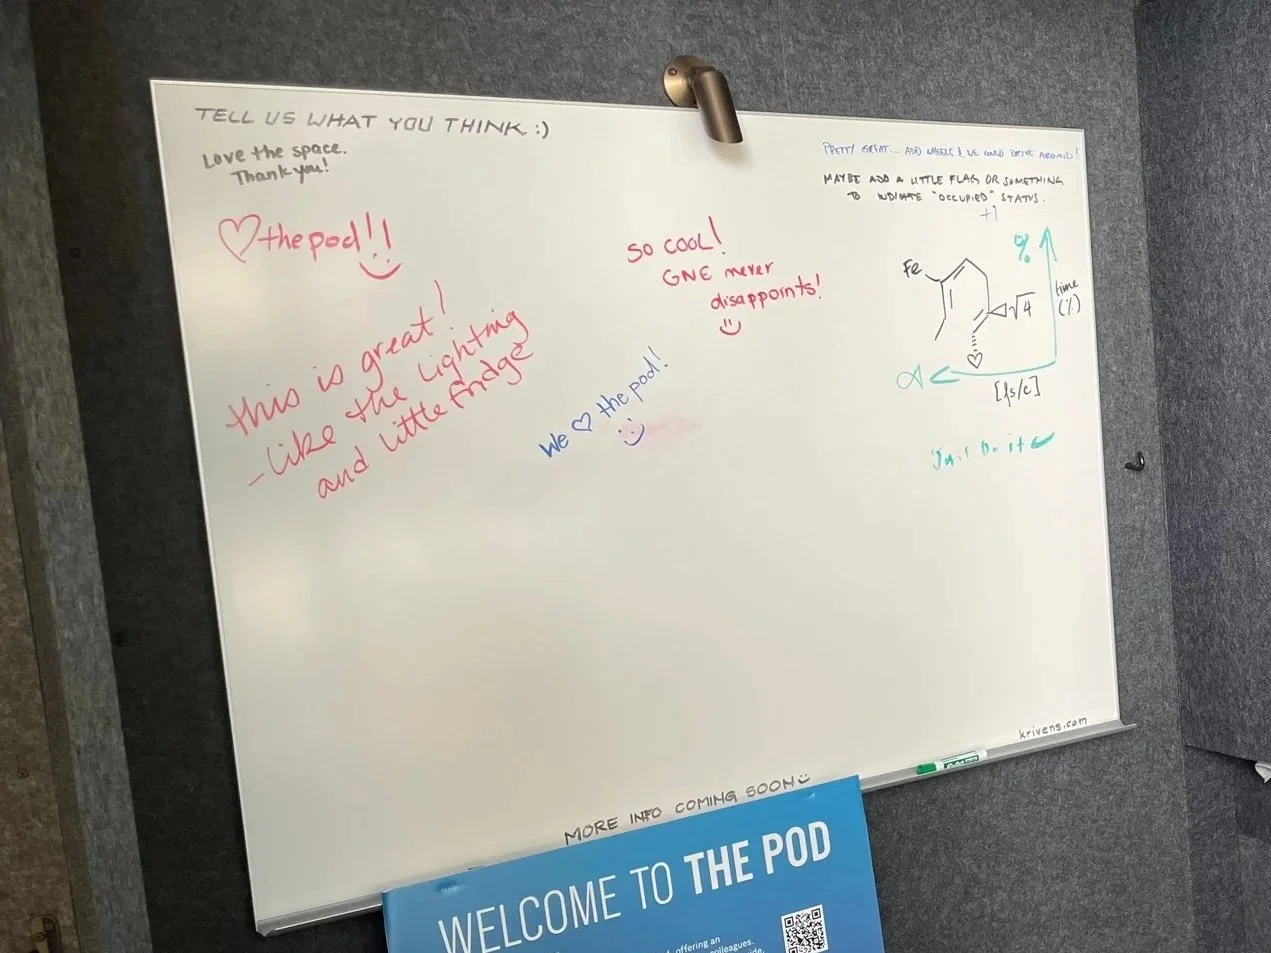 TELL US WHAT YOU THINK :)
Love the space.
Thank you!
♡ the pod!!
this is great!
- like the lighting
and little fridge
SO COOL!
GNE never
disappoints!
We ♡ the pod!
PRETTY GREAT... ADD WHEELS & WE COULD DRIVE AROUND!
MAYBE ADD A LITTLE FLAG OR SOMETHING
TO INDICATE "OCCUPIED" STATUS.
+1
%
Fe
√4
time
(%)
♡
Just Do it
krivens.com
MORE INFO COMING SOON
WELCOME TO THE POD
offering an
colleagues.